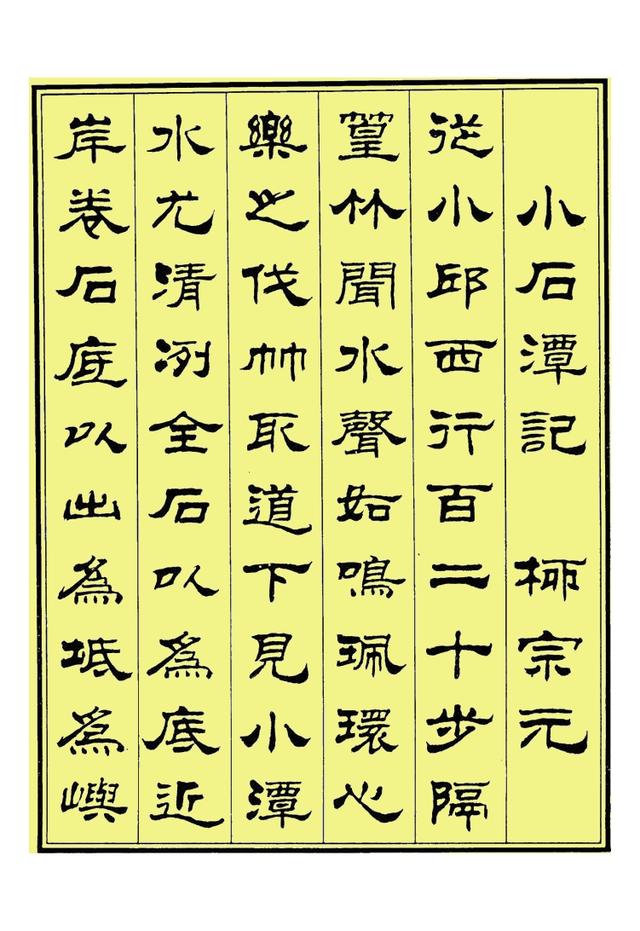 小石潭記 柳宗元
從小邱西行百二十步隔
篁林聞水聲如鳴珮環心
樂之伐竹取道下見小潭
水尤清洌全石以為底近
岸卷石底以出為坻為嶼